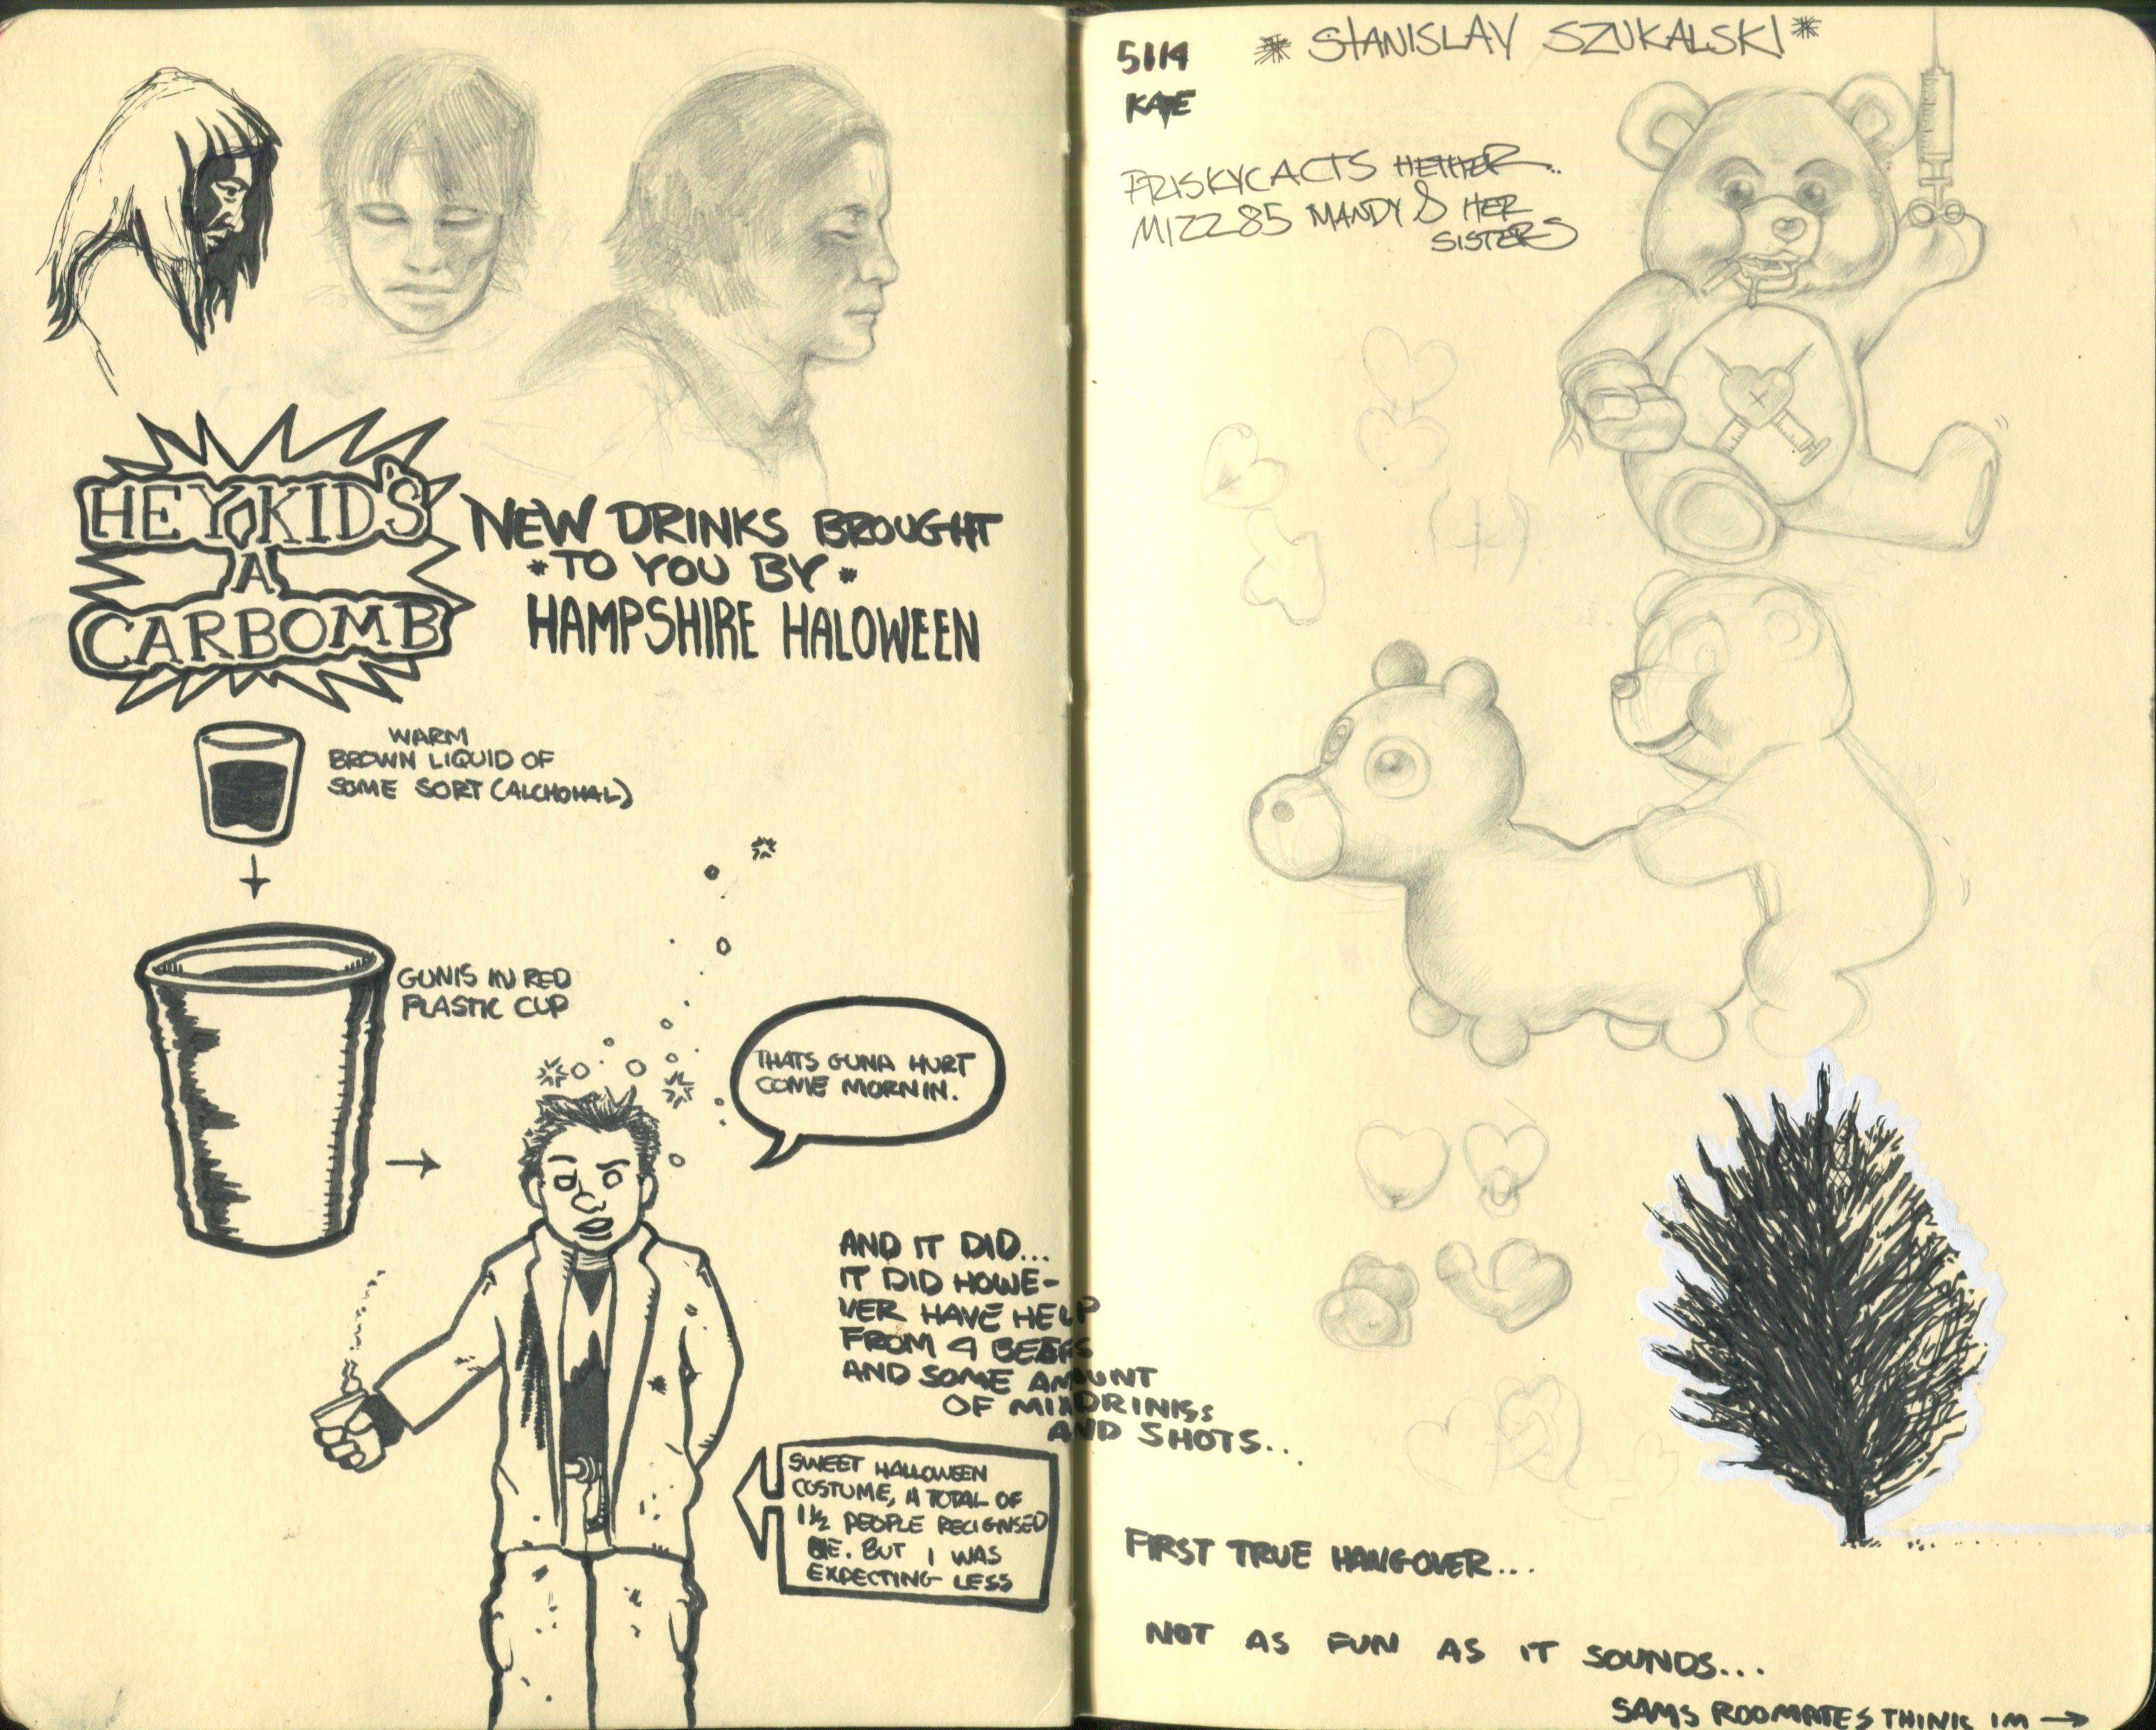 HEY KID'S
A
CARBOMB
NEW DRINKS BROUGHT
*TO YOU BY*
HAMPSHIRE HALOWEEN
WARM
BROWN LIQUID OF
SOME SORT (ALCHOHAL)
GUNIS IN RED
PLASTIC CUP
THATS GUNA HURT
COME MORNIN.
AND IT DID...
IT DID HOWE-
VER HAVE HELP
FROM 4 BEERS
AND SOME AMOUNT
OF MIXDRINKS
AND SHOTS...
SWEET HALLOWEEN
COSTUME, A TOTAL OF
1½ PEOPLE RECIGNISED
ME. BUT I WAS
EXPECTING LESS
5114
KATE
* STANISLAV SZUKALSKI *
FRISKYCACTS HETHER..
MIZZ85 MANDY & HER
SISTERS
FIRST TRUE HANGOVER...
NOT AS FUN AS IT SOUNDS...
SAMS ROOMATES THINK IM →